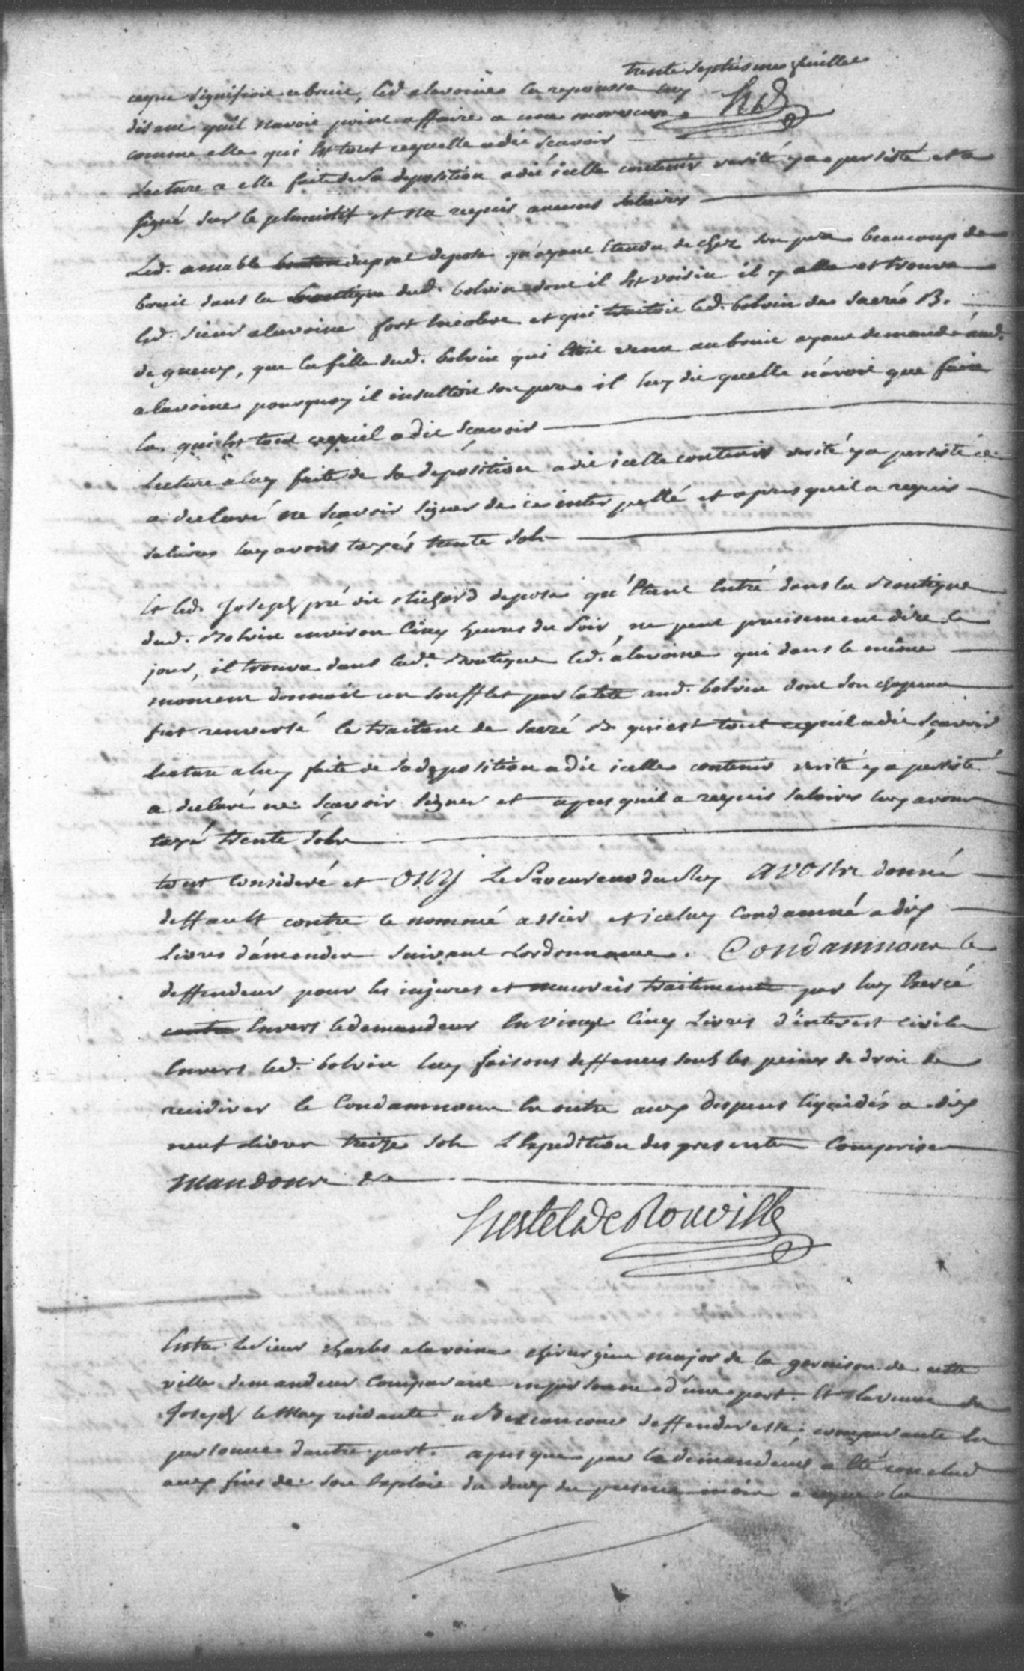 trente septiesme feuillet
ceque signifioit ce bruit, led. alavoine la repoussa luy
disant qu'il navoit point affaire a une morveuse
comme elle qui est tout cequelle a dit scavoir
Lecture a elle faite de sa deposition a dit icelle contenir verité y a persisté et a
signé sur le plumitif et na requis aucuns salaires
Led. amable depose qu'ayant entendu de chez son pere beaucoup de
bruit dans la boutique dud. bolvin dont il est voisin il y alla et trouva
led. sieur alavoine fort en colere et qui traitoit led. bolvin de sacré B.
de gueux, que la fille dud. bolvin qui étoit venu au bruit ayant demandé aud.
alavoine pourquoy il insultoit son pere il luy dit quelle n'avoit que faire
la, qui est tout cequil a dit scavoir
Lecture a luy faite de sa déposition a dit icelle contenir verité y a persisté
a declaré ne scavoir signer de ce interpellé et apres quil a requis
salaires luy avons taxés trente sols
Et led. Joseph pré dit depose qu'étant entré dans la Boutique
dud. Bolvin environ cinq heures du soir, ne peut precisement dire le
jour, il trouva dans lad.e Boutique led. alavoine qui dans le même
moment donnoit un soufflet par la tete aud. bolvin dont son chapeau
fut renversé le traitant de sacré B qui est tout cequil a dit sçavoir
Lecture a luy faite de sa deposition a dit icelle contenir verité y a persisté
a declaré ne sçavoir signer et apres quil a requis salaires luy avons
taxé trente sols
tout consideré et Ouy Le Procureur du Roy avons donné
deffault contre le nommé assier et iceluy condamné a dix
Livres d'amender suivant Lordonnance. Condamnons le
deffendeur pour les injures et mauvais traitements par luy Exercé
contre Envers ledemandeur En vingt cinq Livres d'interest civile
Envers led. bolvin luy faisons deffences sous les peines de droit de
recidiver le Condamnons En outre aux despens liquidés a dix
neuf Livres treize sols L'Expedition des presentes Comprise
Mandons &a
hertel de Rouville
Entre Le sieur charles alavoine chirurgien major de la garnison de cette
ville demandeur Comparant en personne d'une part. Et La veuve de
Joseph le May residante a deffenderesse, comparante En
personne d'autre part. apres que par le demandeur a été conclud
aux fins de son Exploit du douze du present mois a ce que la